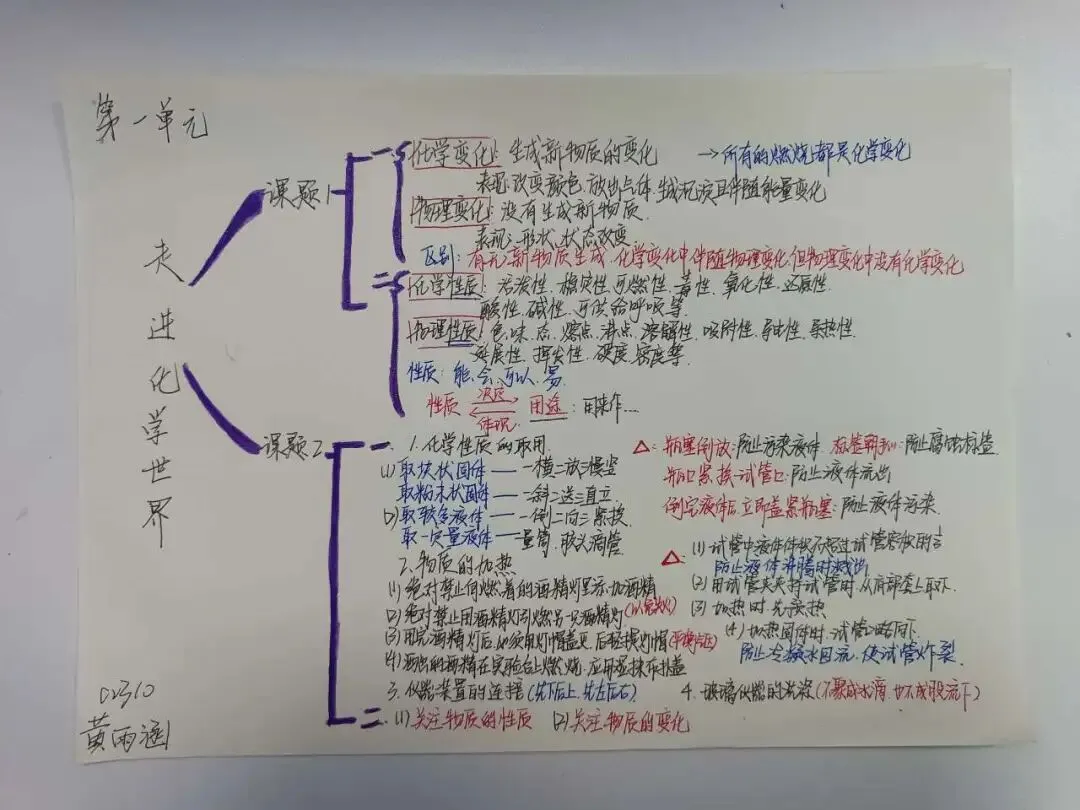 第一单元
走进化学世界
课题1
一 化学变化：生成新物质的变化 →所有的燃烧都是化学变化
表现：改变颜色、放出气体、生成沉淀且伴随能量变化
物理变化：没有生成新物质.
表现：形状、状态改变
区别：有无新物质生成，化学变化中伴随物理变化，但物理变化中没有化学变化
二 化学性质：活泼性、稳定性、可燃性、毒性、氧化性、还原性、
酸性、碱性、可供给呼吸等.
物理性质：色、味、态、熔点、沸点、溶解性、吸附性、导电性、导热性、
延展性、挥发性、硬度、密度等.
性质：能、会、可以、易
性质 决定 体现 用途：用来作…
课题2
一、1.化学性质的取用
(1)取块状固体——一横二放三慢竖
取粉末状固体——一斜二送三直立.
(2)取较多液体——一倒二向三紧挨.
取一定量液体——量筒、胶头滴管.
△：瓶塞倒放：防止污染液体. 标签朝手心：防止腐蚀标签
瓶口紧挨试管口：防止液体流出
倒完液体后，立即盖紧瓶塞：防止液体污染.
2.物质的加热
(1)绝对禁止向燃着的酒精灯里添加酒精
(2)绝对禁止用酒精灯引燃另一只酒精灯(以免失火)
(3)用完酒精灯后，必须用灯帽盖灭，后轻提灯帽(平衡气压)
(4)洒出的酒精在实验台上燃烧，应用湿抹布扑盖
△：(1)试管中液体体积不超过试管容积的
防止液体沸腾时溅出
(2)用试管夹夹持试管时，从底部套上取下.
(3)加热时先预热
(4)加热固体时，试管口略向下.
防止冷凝水回流，使试管炸裂.
3.仪器装置的连接(先下后上，先左后右)
4.玻璃仪器的洗涤(不聚成水滴，也不成股流下)
二 (1)关注物质的性质 (2)关注物质的变化
黄雨涵